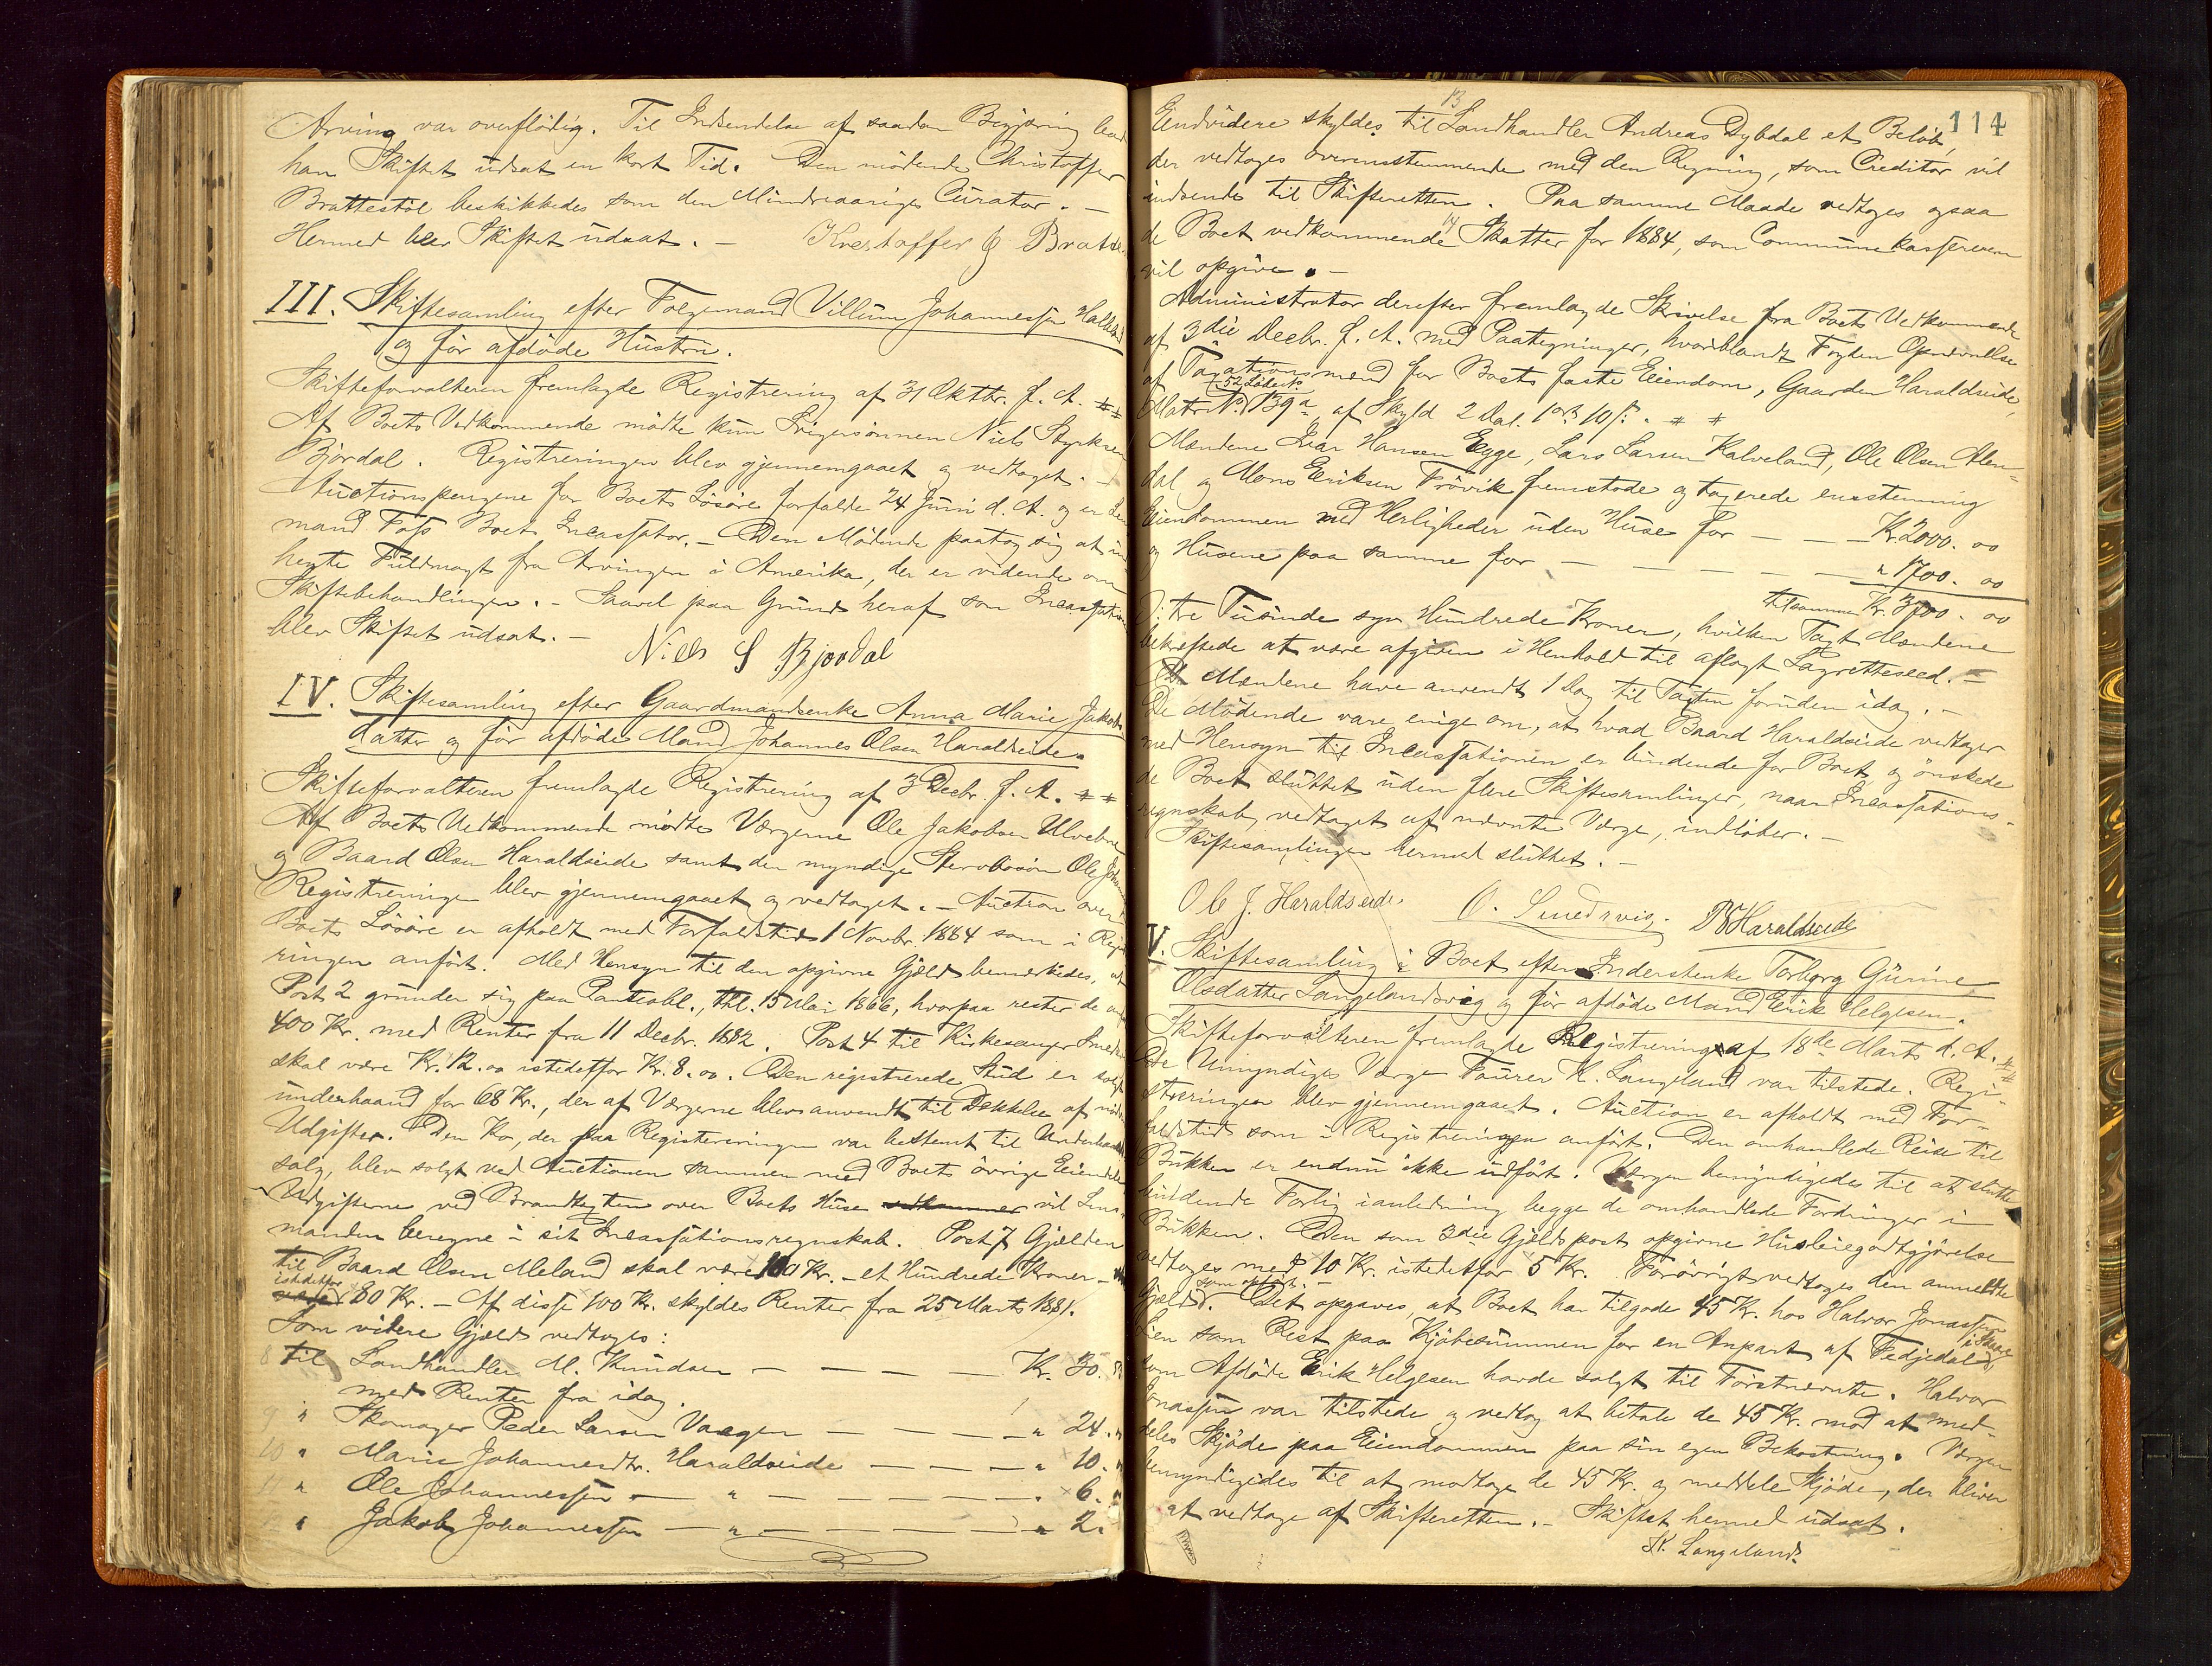 Arving var overflödig. Til Indsendelse af saadan Begjæring bad
han Skiftet udsat en kort Tid. Den mödende Christoffer
Brattestöl beskikkedes som den Mindreaariges Curator. –
Hermed blev Skiftet udsat. – Krestoffer G Bratte
III. Skiftesamling efter Folgemand Villum Johannessen
og för afdöde Hustru.
Skifteforvalteren fremlagde Registrering af 31 Oktbr. f. A. ⁎ ⁎
Af Boets Vedkommende mödte kun Svigersönnen Niels
Björdal. Registreringen blev gjennemgaaet og vedtaget. –
Auctionspengene for Boets Lösöre forfalde 24 Juni d. A. og er
mand Foss Boets Incassator. – Den Mödende paatog sig at
hente Fuldmagt fra Arvingen i Amerika, der er vidende om
Skiftebehandlingen. – Saavel paa Grund heraf som
blev Skiftet udsat. –
Niels S Bjordal
IV. Skiftesamling efter Gaardmandsenke Anna Marie Jakobs
datter og för afdöde Mand Johannes Olsen Haraldseide.
Skifteforvalteren fremlagde Registrering af 3 Decbr. f. A. ⁎ ⁎
Af Boets Vedkommende mödte Værgerne Ole Jakobsen
og Baard Olsen Haraldseide samt den myndige Stervbosön Ole
Registreringen blev gjennemgaaet og vedtaget. – Auction over
Boets Lösöre er afholdt med Forfaldstid 1 Novbr. 1884 som i
ringen anfört. Med Hensyn til den opgivne Gjæld bemærkedes,
Post 2 grunder sig paa Panteobl., thl. 15 Mai 1866, hvorpaa rester de
400 Kr. med Renter fra 11 Decbr. 1882. Post 4 til Kirkesanger
skal være Kr. 12.00 istedetfor Kr. 8.00. Den registrerede Stud er
underhaand for 68 Kr., der af Værgerne blev anvendt til Dækkelse af
Udgifter. Den Ko, der paa Registreringen var bestemt til
salg, blev solgt ved Auctionen sammen med Boets övrige
Udgifterne ved Brandtaxten over Boets Huse vil Lens-
manden beregne i sit Incassationsregnskab. Post 7 Gjælden
til Baard Olsen Meland skal være 100 Kr. – et Hundrede Kroner –
istedetfor
80 Kr. – Af disse 100 Kr. skyldes Renter fra 25 Marts 1881.
Som videre Gjæld vedtoges:
8 til Landhandler M. Knudsen — — — Kr. 30.
med Renter fra idag.
9 " Skomager Peder Larsen Vaagen — — — " 24.
10 " Marie Johannesdtr. Haraldseide — — — " 10.
11 " Ole Johannessen — " — — — " 6.
" Jakob Johannessen — " — — — " 2.
114
13
Eindvidere skyldes til Landhandler Andreas Dybdal et Belöb,
der vedtoges overensstemmende med den Regning, som Creditor vil
indsende til Skifteretten. Paa samme Maade vedtoges ogsaa
14
de Boet vedkommende Skatter for 1884, som Communekassereren
vil opgive. –
Administrator derefter fremlagde Skrivelse fra Boets Vedkommende
af 3die Decbr. f. A. med Paategninger, hvoriblandt Fogdens Opnævnelse
af Taxationsmænd for Boets faste Eiendom, Gaarden Haraldseide,
52 Löbe No
Matr. No. 139a af Skyld 2 Dal. 1 ort 10 s. ⁎ ⁎
Mændene Ivar Hansen Egge, Lars Larsen Kalveland, Ole Olsen
dal og Mons Eriksen Frövik fremstode og taxerede eensstemmig
Eiendommen med Herligheder uden Huse for — — — Kr. 2000. 00
og Husene paa samme for — — — — — " 1700. 00
tilsammen Kr. 3700. 00
D: tre Tusinde syv Hundrede Kroner, hvilken Taxt Mændene
bekræftede at være afgiven i Henhold til aflagt Lagretteseed. –
Mændene have anvendt 1 Dag til Taxten foruden idag. –
De Mödende vare enige om, at hvad Baard Haraldseide vedtager
med Hensyn til Incassationen er bindende for Boet, og önskede
de Boet sluttet uden flere Skiftesamlinger, naar Incassations-
regnskab, vedtaget af nævnte Værge, indlöber. –
Skiftesamlingen hermed sluttet. –
Ole J. Haraldseide. O. Smedsvig. B O Haraldseide
V. Skiftesamling i Boet efter Inderstenke Torborg Gurine
Olsdatter Langelandsvig og för afdöde Mand Erik Helgesen.
Skifteforvalteren fremlagde Registrering af 18de Marts d. A. ⁎ ⁎
De Umyndiges Værge K. Langeland var tilstede. Regi-
streringen blev gjennemgaaet. Auction er afholdt med For-
faldstid som i Registreringen anfört. Den omhandlede Reise til
Bukken er endnu ikke udfört. Værgen bemyndigedes til at slutte
bindende Forlig ianledning begge de omhandlede Fordringer i
Bukken. Den som 3die Gjældspost opgivne Husleiegodtgjörelse
vedtoges med 10 Kr. istedetfor 5 Kr. Forövrigt vedtoges den anmeldte
som opfört. –
Gjæld. Det opgaves, at Boet har tilgode 45 Kr. hos Halvor Jonassen
Lien som Rest paa Kjöbesummen for en Anpart af Fedjedal
som Afdöde Erik Helgesen havde solgt til Förstnævnte. Halvor
Jonassen var tilstede og vedtog at betale de 45 Kr. mod at med-
deles Skjöde paa Eiendommen paa sin egen Bekostning. Værgen
bemyndigedes til at modtage de 45 Kr. og meddele Skjöde, der bliver
at vedtage af Skifteretten. – Skiftet hermed udsat.
K. Langeland